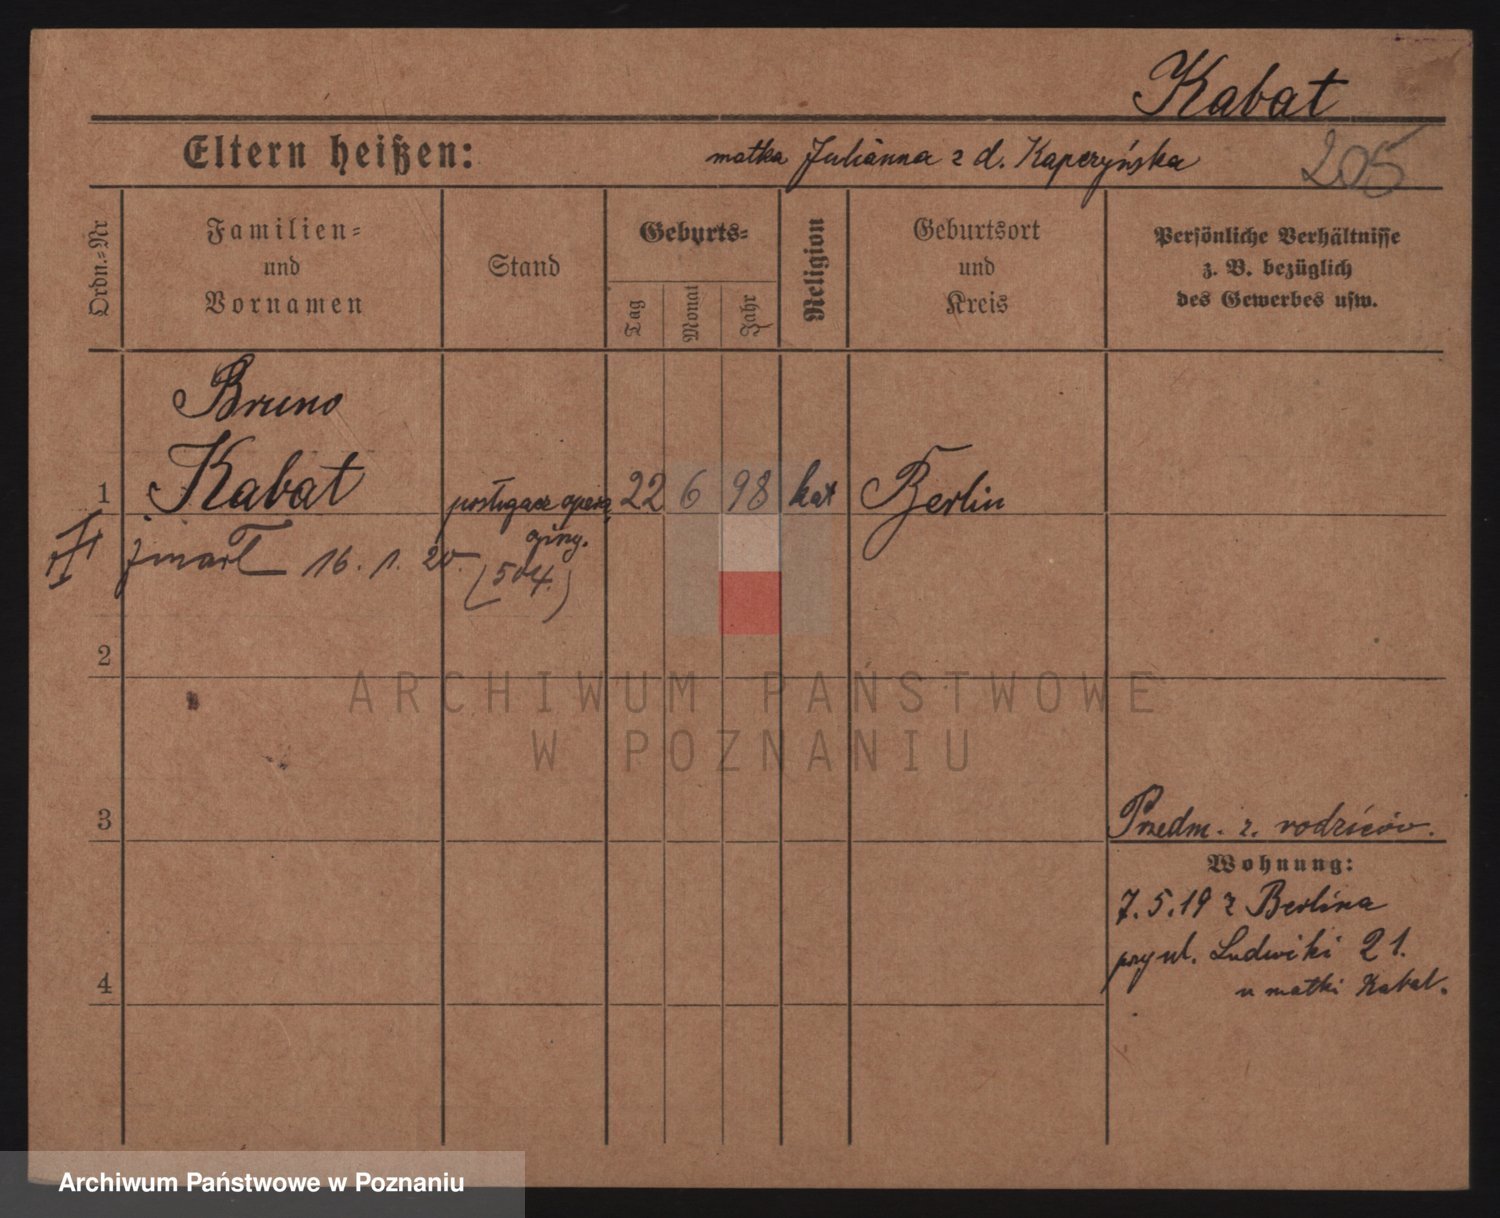 Kabat
Eltern heißen: matka Julianna z d. Kaperzyńska 205
Ordn.-Nr
Familien-
und
Vornamen
Stand
Geburts-
Tag
Monat
Jahr
Religion
Geburtsort
und
Kreis
Persönliche Verhältnisse
z. B. bezüglich
des Gewerbes usw.
Bruno
1 Kabat posługacz 22 6 98 kat Berlin
zmarł 16. 1. 20.
(504.)
2
ARCHIWUM PAŃSTWOWE
W POZNANIU
3
Przedm. z. rodziców.
Wohnung:
7.5.19 z Berlina
przy ul. Ludwiki 21.
u matki Kabat.
4
Archiwum Państwowe w Poznaniu